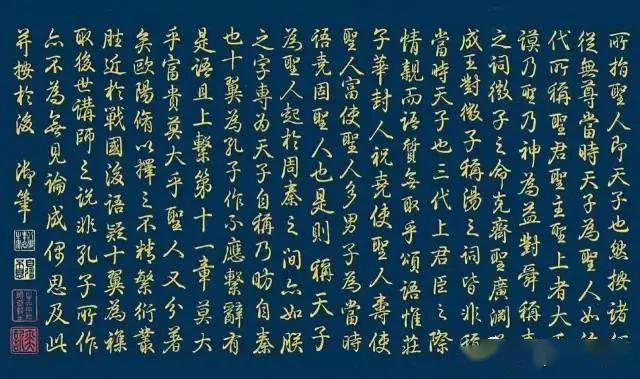 所指聖人即天子也然按諸
從無尊當時天子為聖人如
代所稱聖君聖主聖上者大
謨乃聖乃神為益對舜稱
之詞微子之命克齊聖廣淵
成王對微子稱湯之詞皆非稱
當時天子也三代上君臣之際
情親而語質無取乎頌語惟莊
子華封人祝堯使聖人壽使
聖人富使聖人多男子當時
語堯固聖人也是則稱天子
為聖人起於周秦之間亦如朕
之字專為天子自稱乃昉自秦
也十翼為孔子作不應繫辭有
是語且上繫第十一章莫大
乎富貴莫大乎聖人又分著
矣歐陽脩以擇之不精繁衍叢
脞近於戰國後語疑十翼為襍
取後世講師之說非孔子所作
亦不為無見論成偶思及此
并按於後 御筆